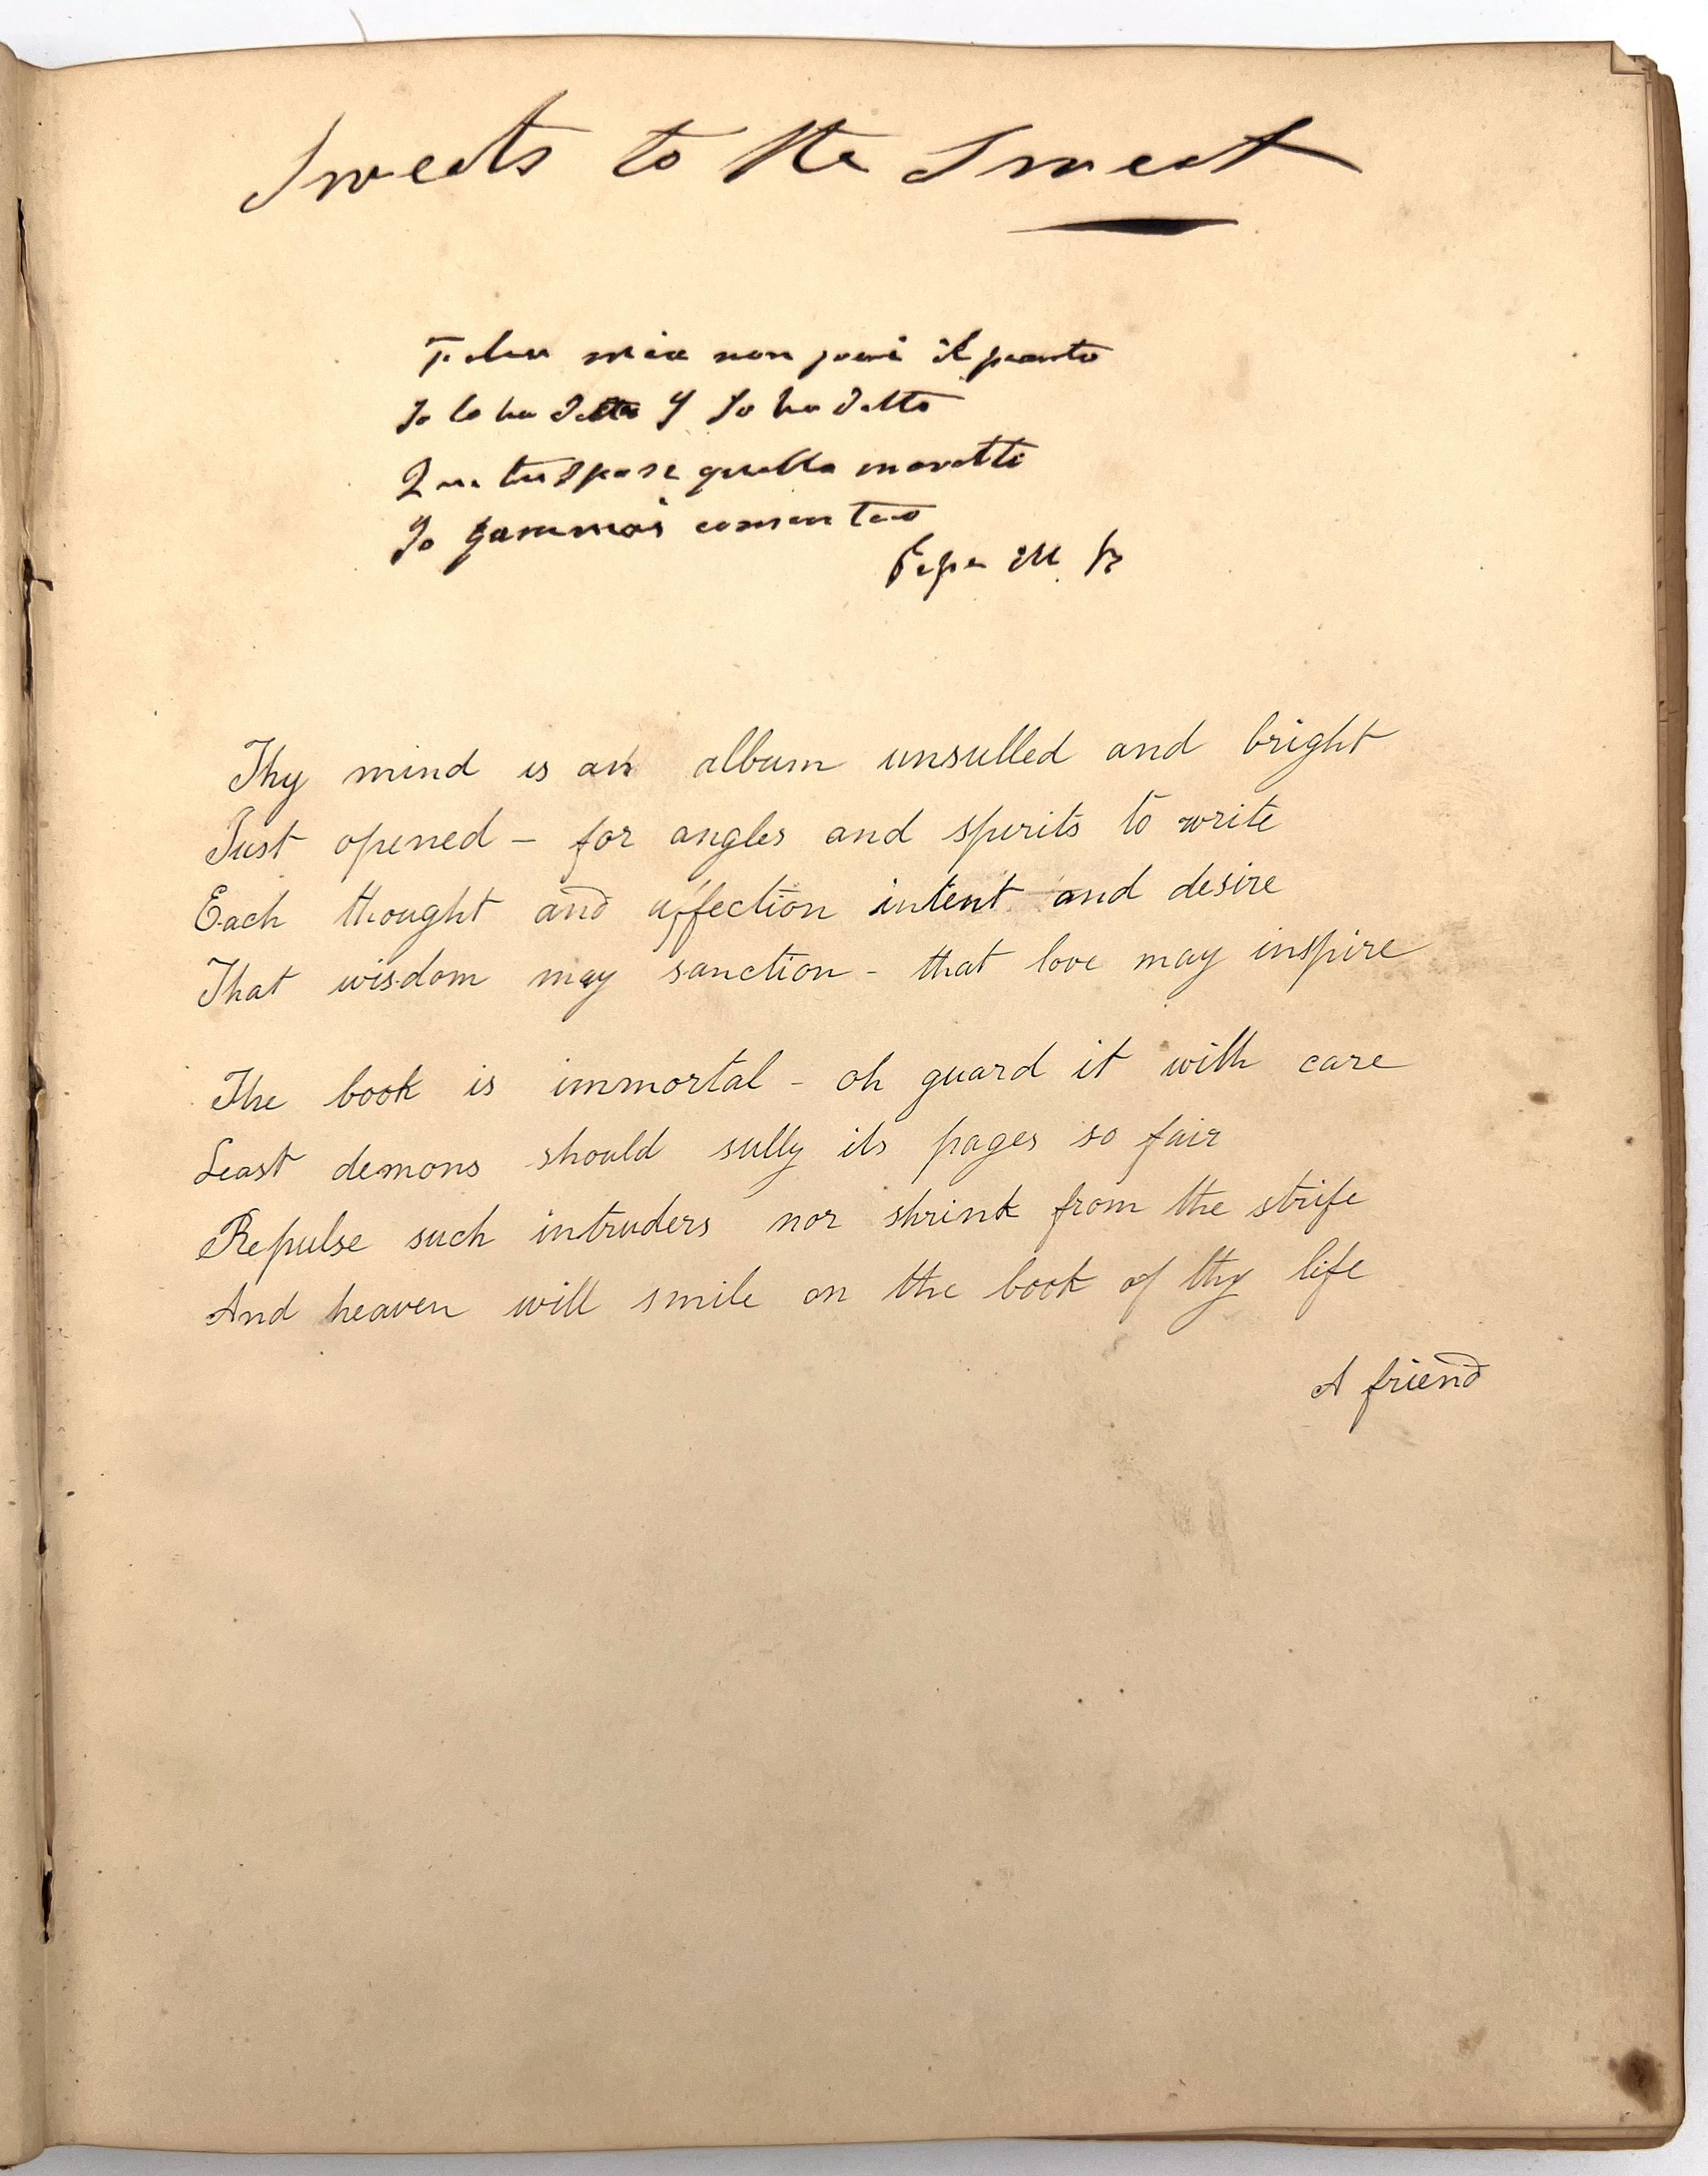 Sweets to the Sweet
mia non il pianto
Jo lo ho detto y Jo ho detto
Que tu spose quella moretti
Jo jammai
Pepe M.
Thy mind is an album unsulled and bright
Just opened – for angles and spirits to write
Each thought and affection intent and desire
That wisdom may sanction - that love may inspire
The book is immortal - oh guard it with care
Least demons should sully its pages so fair
Repulse such intruders nor shrink from the strife
And heaven will smile on the book of thy life
A friend